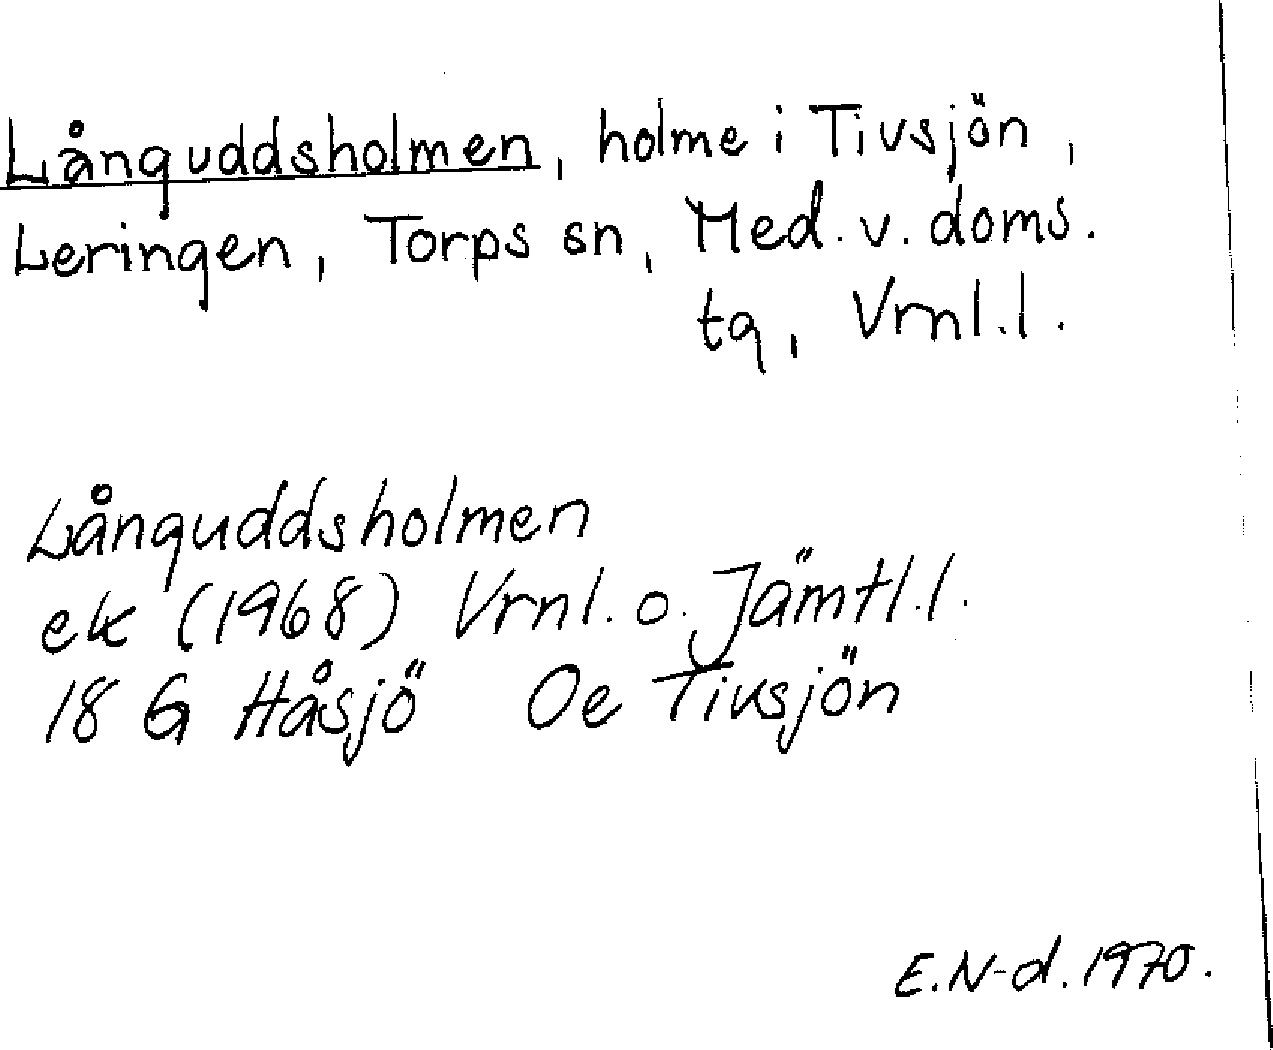 Långuddsholmen, holme i Tivsjön,
Leringen, Torps sn, Med. v. doms.
tg, Vrnl.l.
Långuddsholmen
ek (1968) Vrnl. o. Jämtl.l.
18 G Håsjö Oe Tivsjön
E.N-d. 1970.